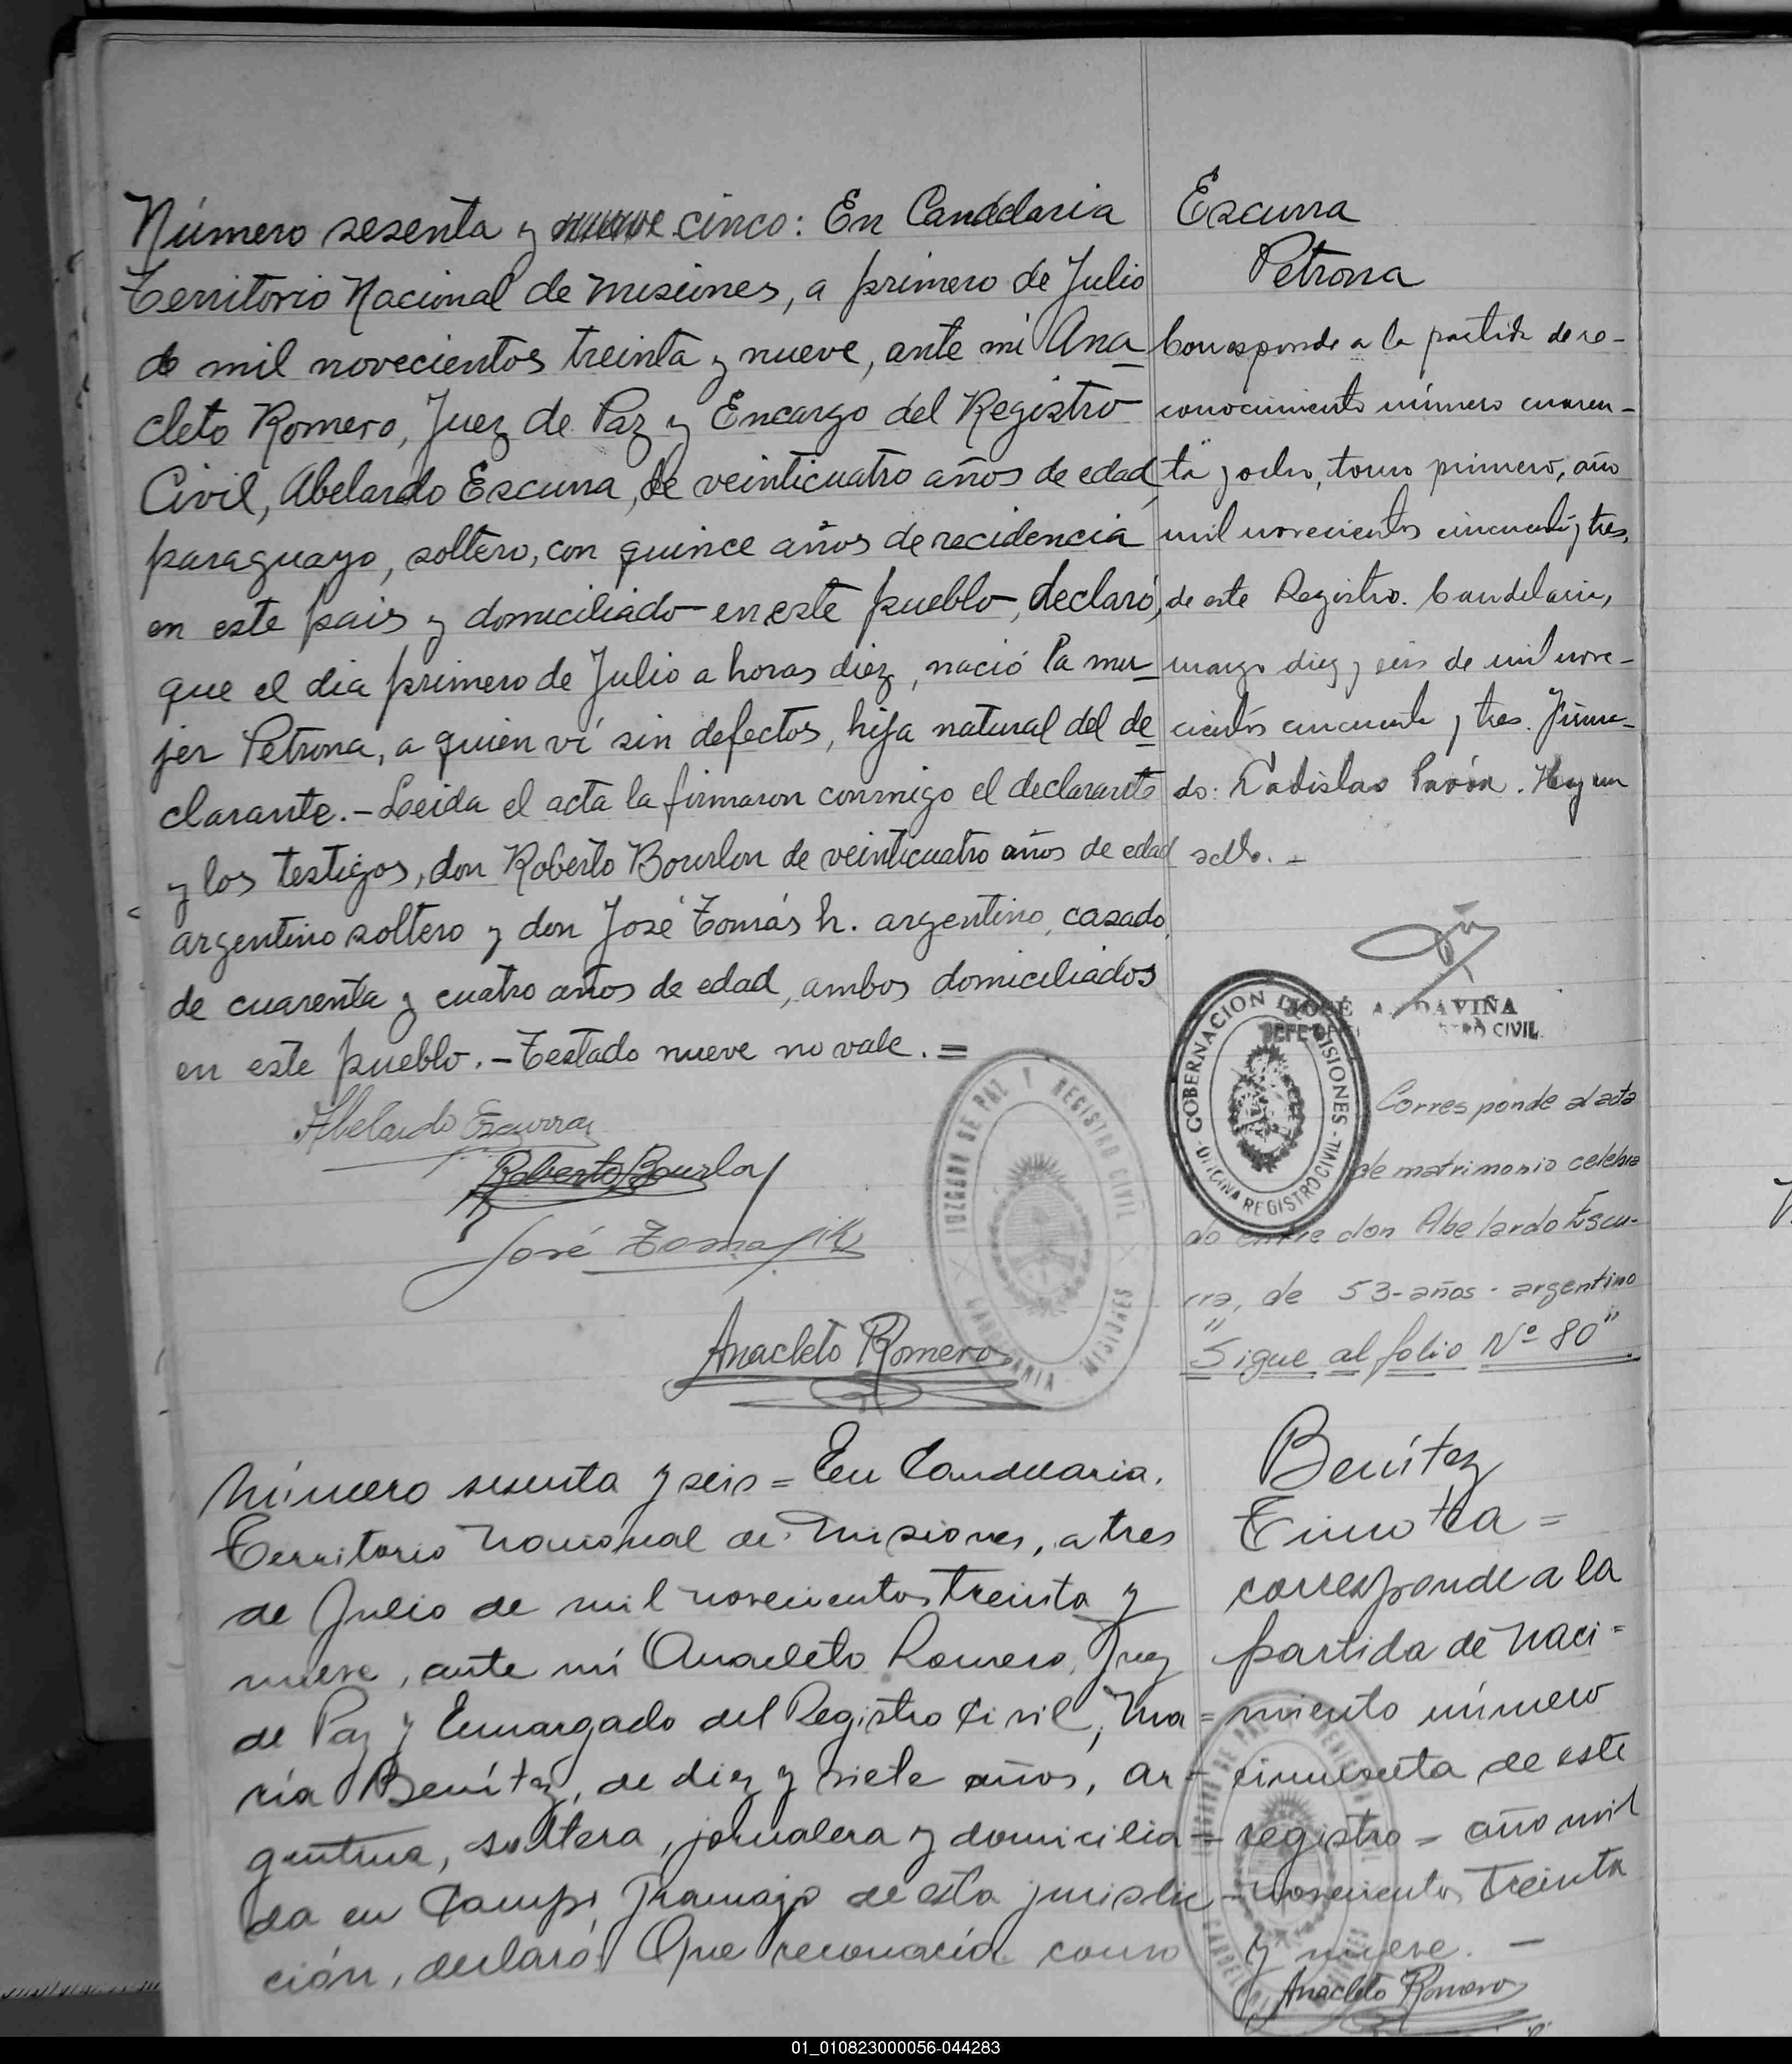 Número sesenta y nueve cinco: En Candelaria
Territorio Nacional de Misiones, a primero de Julio
de mil novecientos treinta y nueve, ante mi Ana
cleto Romero, Juez de Paz y Encargo del Registro
Civil, Abelardo Escurra, de veinticuatro años de edad,
paraguayo, soltero, con quince años de recidencia
en este pais y domiciliado en este pueblo, declaró,
que el dia primero de Julio a horas diez, nació la mu-
jer Petrona, a quien ví sin defectos, hija natural del de
clarante.- Leida el acta la firmaron conmigo el declarante
y los testigos, don Roberto Bourlon de veinticuatro años de edad
argentino soltero y don José Tomás h. argentino, casado,
de cuarenta y cuatro años de edad, ambos domiciliados
en este pueblo.- Testado nueve no vale. =
Abelardo Escurra
Roberto Bourlon
José Tomas
Anacleto Romero
JUZGADO DE PAZ Y REGISTRO CIVIL
CANDELARIA - MISIONES
Escurra
Petrona
Corresponde a la partida de re-
conocimiento número cuaren-
ta y ocho, tomo primero, año
mil novecientos cincuenta y tres,
de este Registro. Candelaria,
marzo diez y seis de mil nove-
cientos cincuenta y tres. Firma-
do: Ladislao Pavón. Hay un
sello. -
JOSÉ A. DAVIÑA
JEFE REGISTRO CIVIL
GOBERNACION DE MISIONES
- OFICINA REGISTRO CIVIL -
Corresponde al acta
de matrimonio celebra
do entre don Abelardo Escu-
rra, de 53-años - argentino
"Sigue al folio Nº 80"
Número sesenta y seis = En Candelaria.
Territorio Nacional de Misiones, a tres
de Julio de mil novecientos treinta y
nueve, ante mí Anacleto Romero, Juez
de Paz y Encargado del Registro Civil, Ma=
ría Benítez, de diez y siete años, ar-
gentina, soltera, jornalera y domicilia=
da en Campo de esta jurisdic-
ción, declaró: Que reconocía como
Benítez
Timotea =
corresponde a la
partida de naci=
miento número
cincuenta de este
registro = año mil
novecientos treinta
y nueve. -
Anacleto Romero
01_010823000056-044283